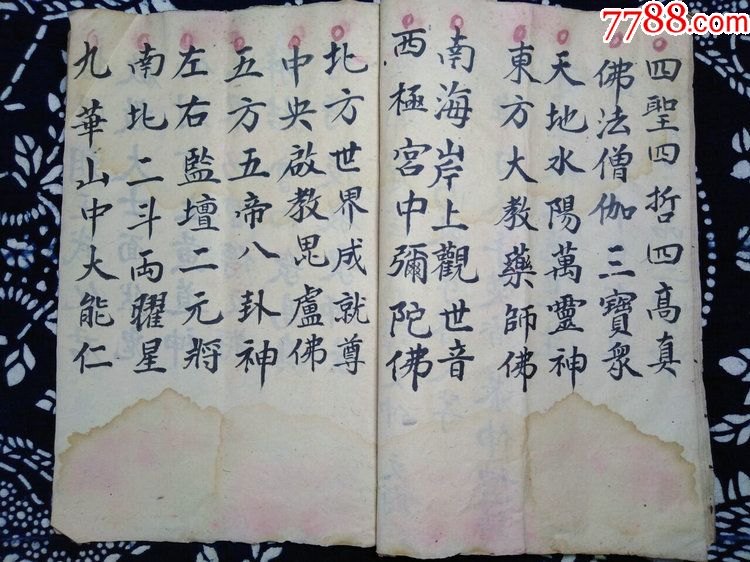 7788.com
四聖四哲四高真
佛法僧伽三寶眾
天地水陽萬靈神
東方大教藥師佛
南海岸上觀世音
西極宮中彌陀佛
北方世界成就尊
中央啟教毘盧佛
五方五帝八卦神
左右監壇二元將
南北二斗両曜星
九華山中大能仁